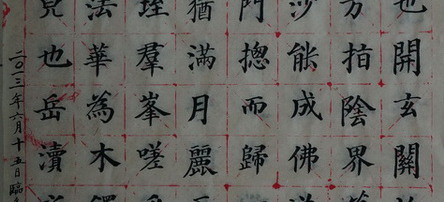 也開玄關
方拍陰界
沙能成佛
門揔而歸
猶滿月麗
羣峯嗟
法華為木
也岳瀆
二〇一三年六月十五日臨